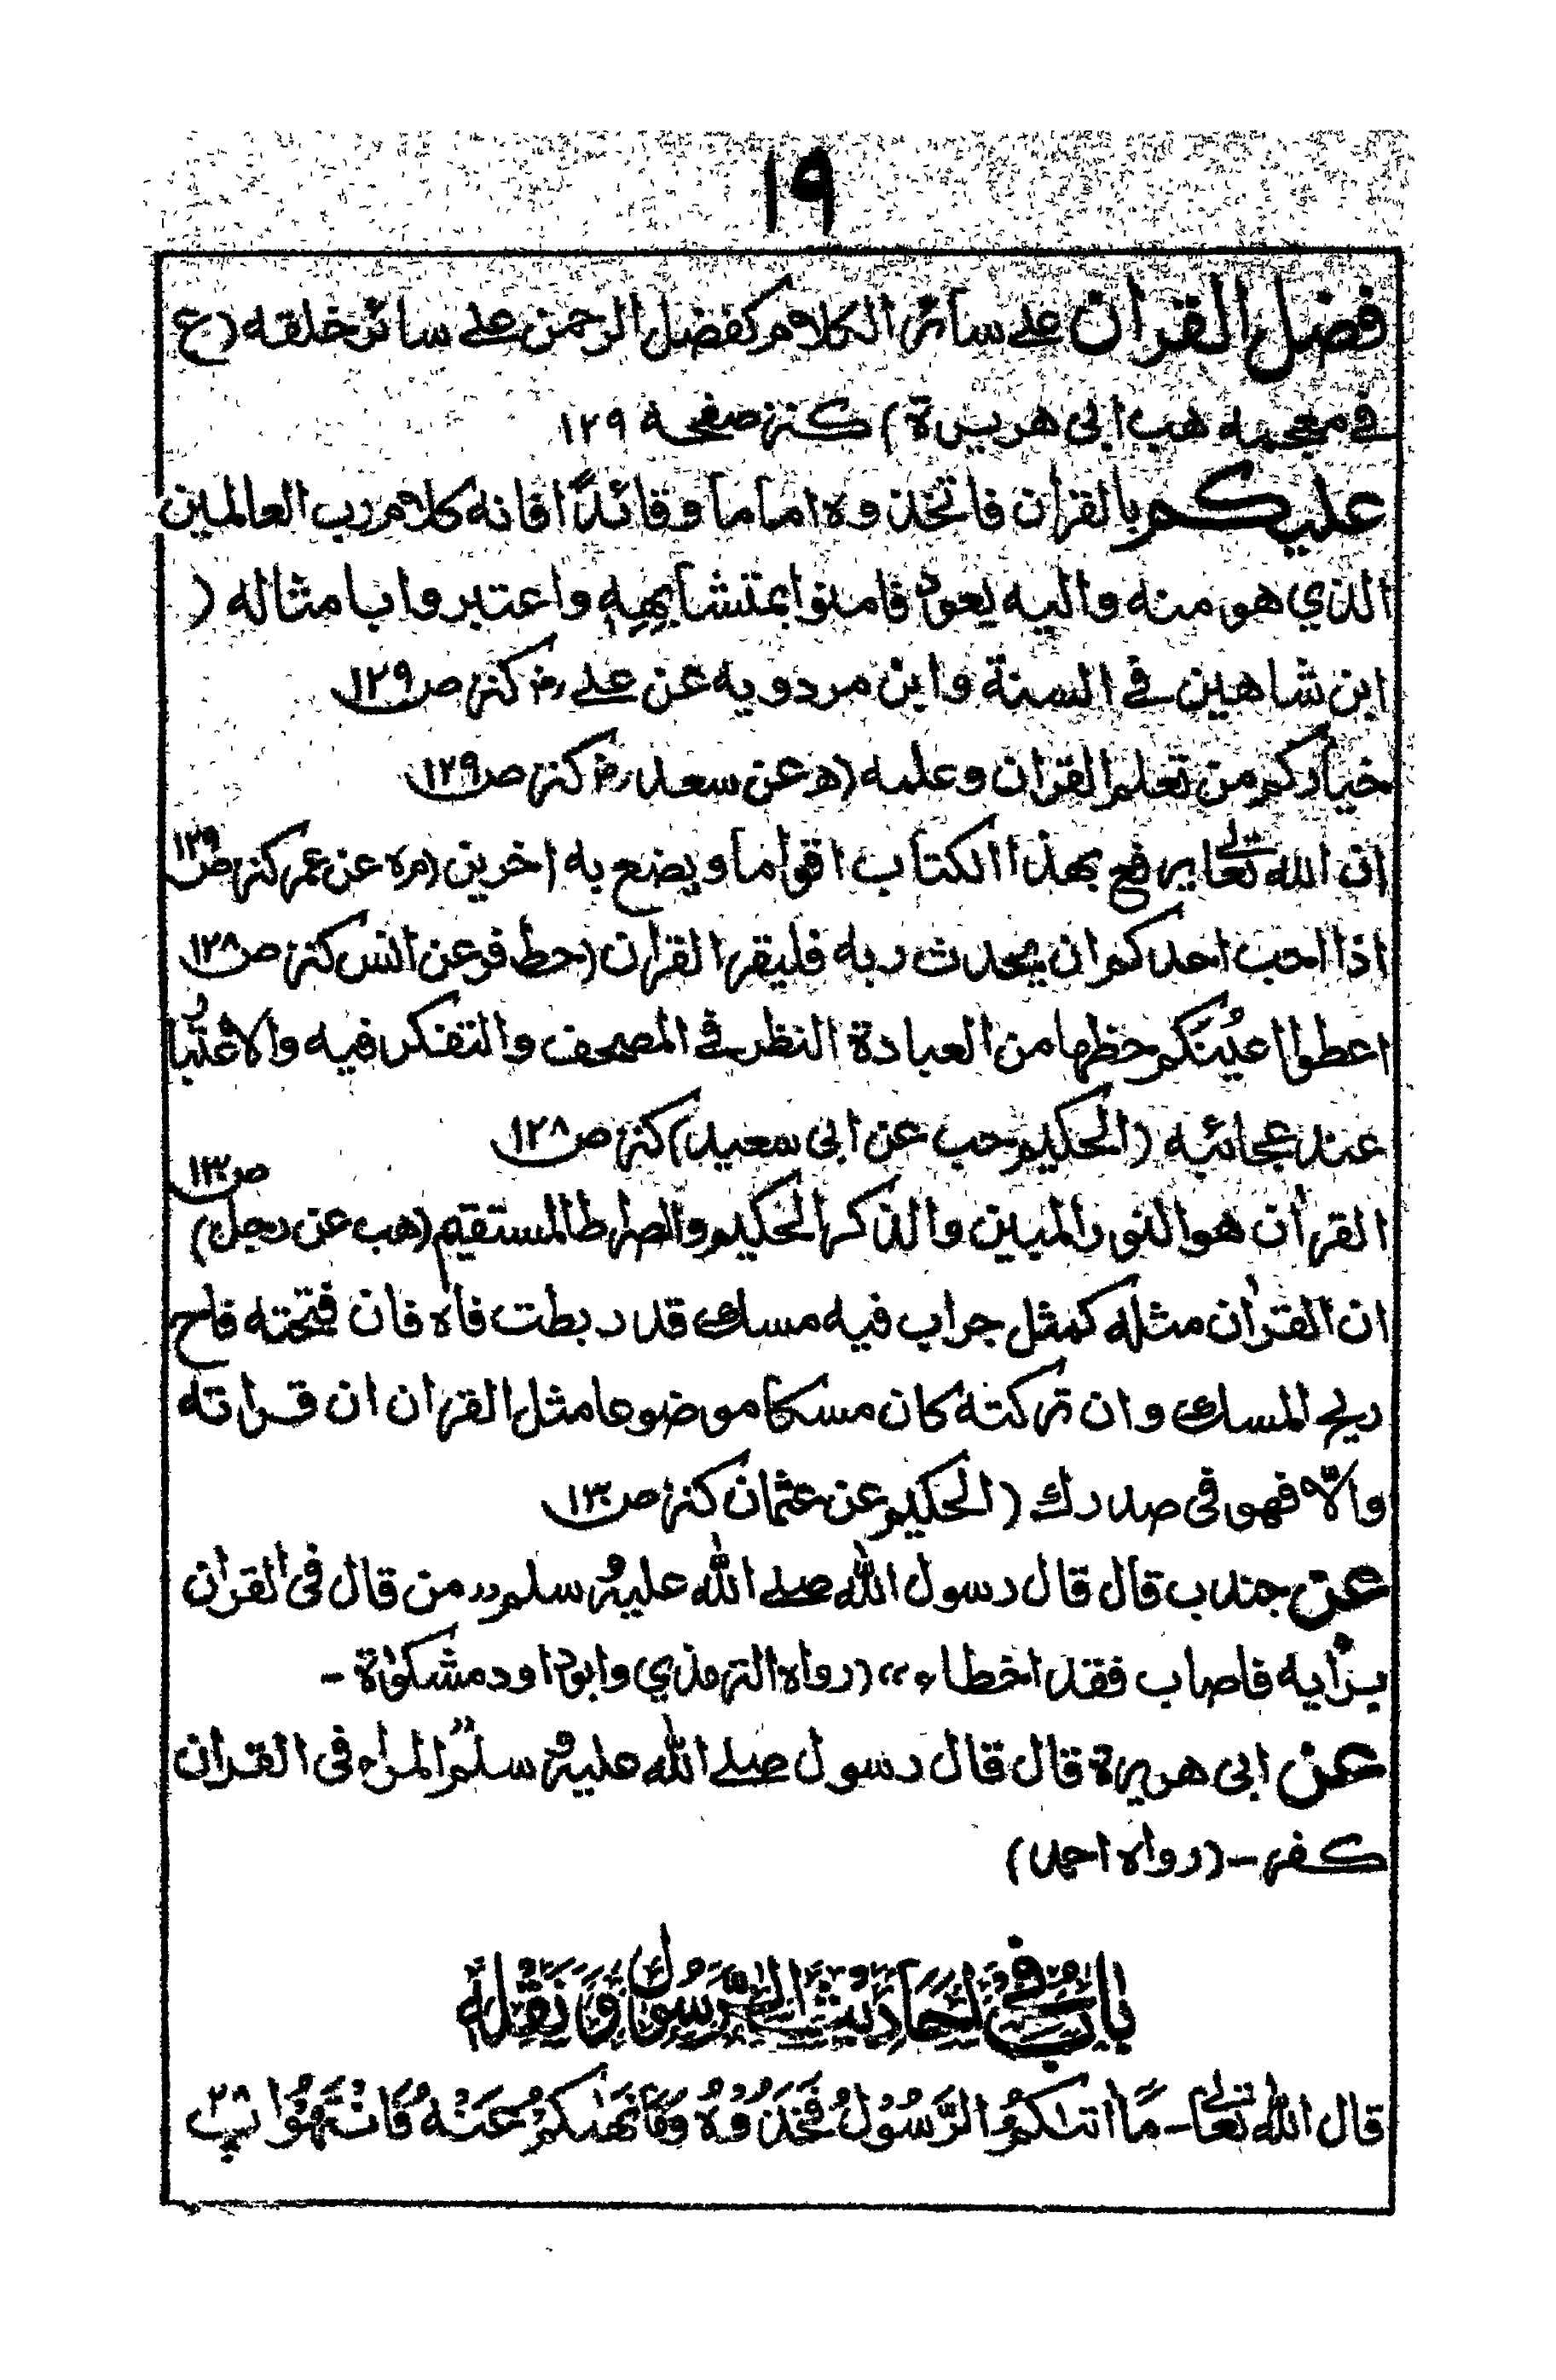 ١٩
فضل القرآن على سائر الكلام كفضل الرحمن على سائر خلقه (ع
في معجمه هب ابى هريرة) كنز صفحه ١٢٩
عليكم بالقرآن فاتخذوه اماما وقائدًا فانه كلام رب العالمين
الذي هو منه واليه يعود فامنوا بمتشابهِهِ واعتبروا بامثاله (
ابن شاهين في السنة وابن مردويه عن علي رض كنز ص١٢٩
خياركم من تعلم القرآن وعلمه (ه عن سعد رض كنز ص١٢٩
ان الله تعالى يرفع بهذا الكتاب اقواما ويضع به اخرين (م ه عن عمر كنز ص١٢٩
اذا احب احدكم ان يحدث ربه فليقرا القرآن (حط فر عن انس كنز ص١٢٨
اعطوا اعيُنَكم حظها من العبادة النظر في المصحف والتفكر فيه والاعتبار
عند عجائبه (الحكيم حب عن ابى سعيد) كنز ص١٢٨
القرآن هو النور المبين والذكر الحكيم والصراط المستقيم (هب عن رجل) ص١٣٠
ان القرآن مثله كمثل جراب فيه مسك قد ربطت فاه فان فتحته فاح
ريح المسك وان تركته كان مسكا موضوعا مثل القرآن ان قراته
والّا فهو في صدرك (الحكيم عن عثمان كنز ص١٣٠
عن جندب قال قال رسول الله صلے الله عليه وسلم "من قال فى القرآن
برأيه فاصاب فقد اخطاء" (رواه الترمذي وابوداود مشكوٰة -
عن ابى هريرة قال قال رسول صلے الله عليه وسلم "المراء فى القرآن
كفر - (رواه احمد)
بابٌ فى احَاديث الرَّسُول وَنَقْلِهِ
قال الله تعالى - مَا اتٰكمُ الرَّسُوْلُ فَخُذُوْهُ وَمَا نَهٰىكمْ عَنْهُ فَانْتَهُوْا پ٢٨